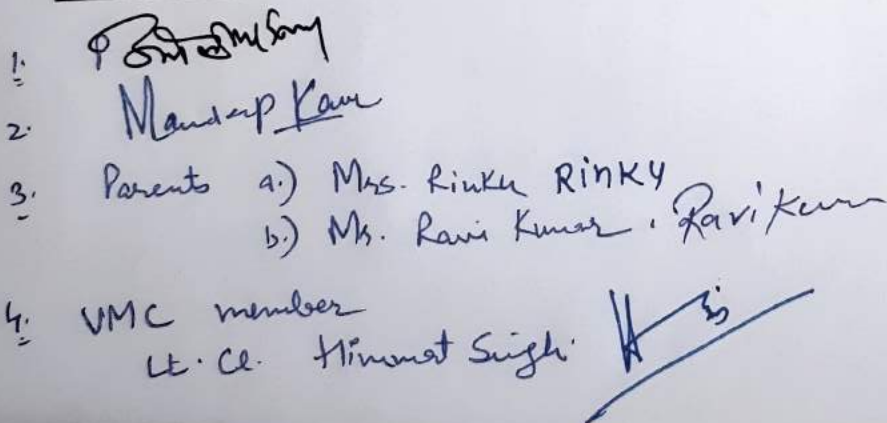 1.
2. Mandeep Kaur
3. Parents a.) Mrs. Rinku RINKY
b.) Mr. Ravi Kumar. Ravi Kumar
4. VMC member
Lt. Cl. Himmat Singh.